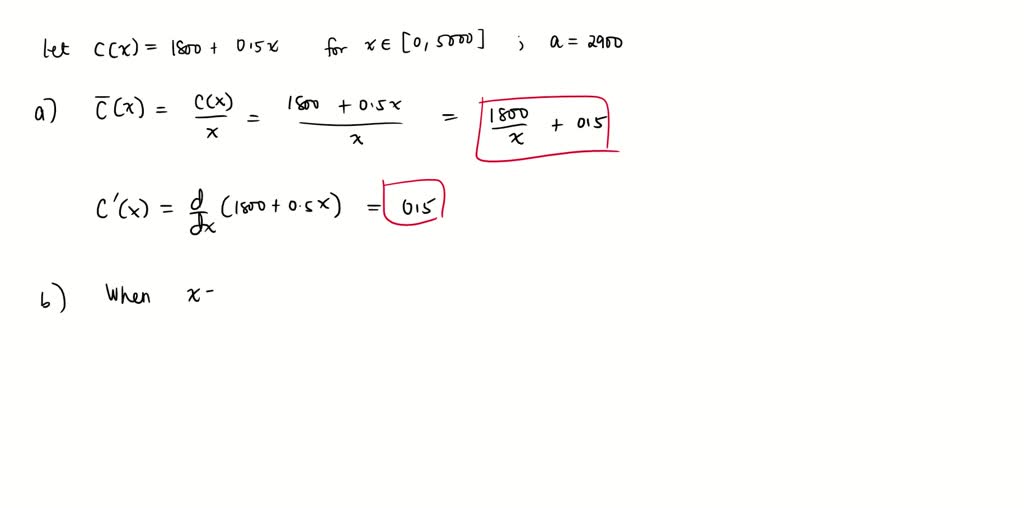 let C(x) = 1800 + 0.5x for x ∈ [0, 5000] ; a = 2900
a) C̅(x) = C(x)/x = (1800 + 0.5x)/x = 1800/x + 0.5
C'(x) = d/dx (1800 + 0.5x) = 0.5
b) When x -